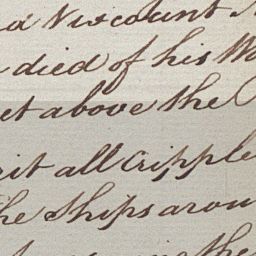 Viscount
died of his Wo
et above the
it all Cripple
he Ships arou
the